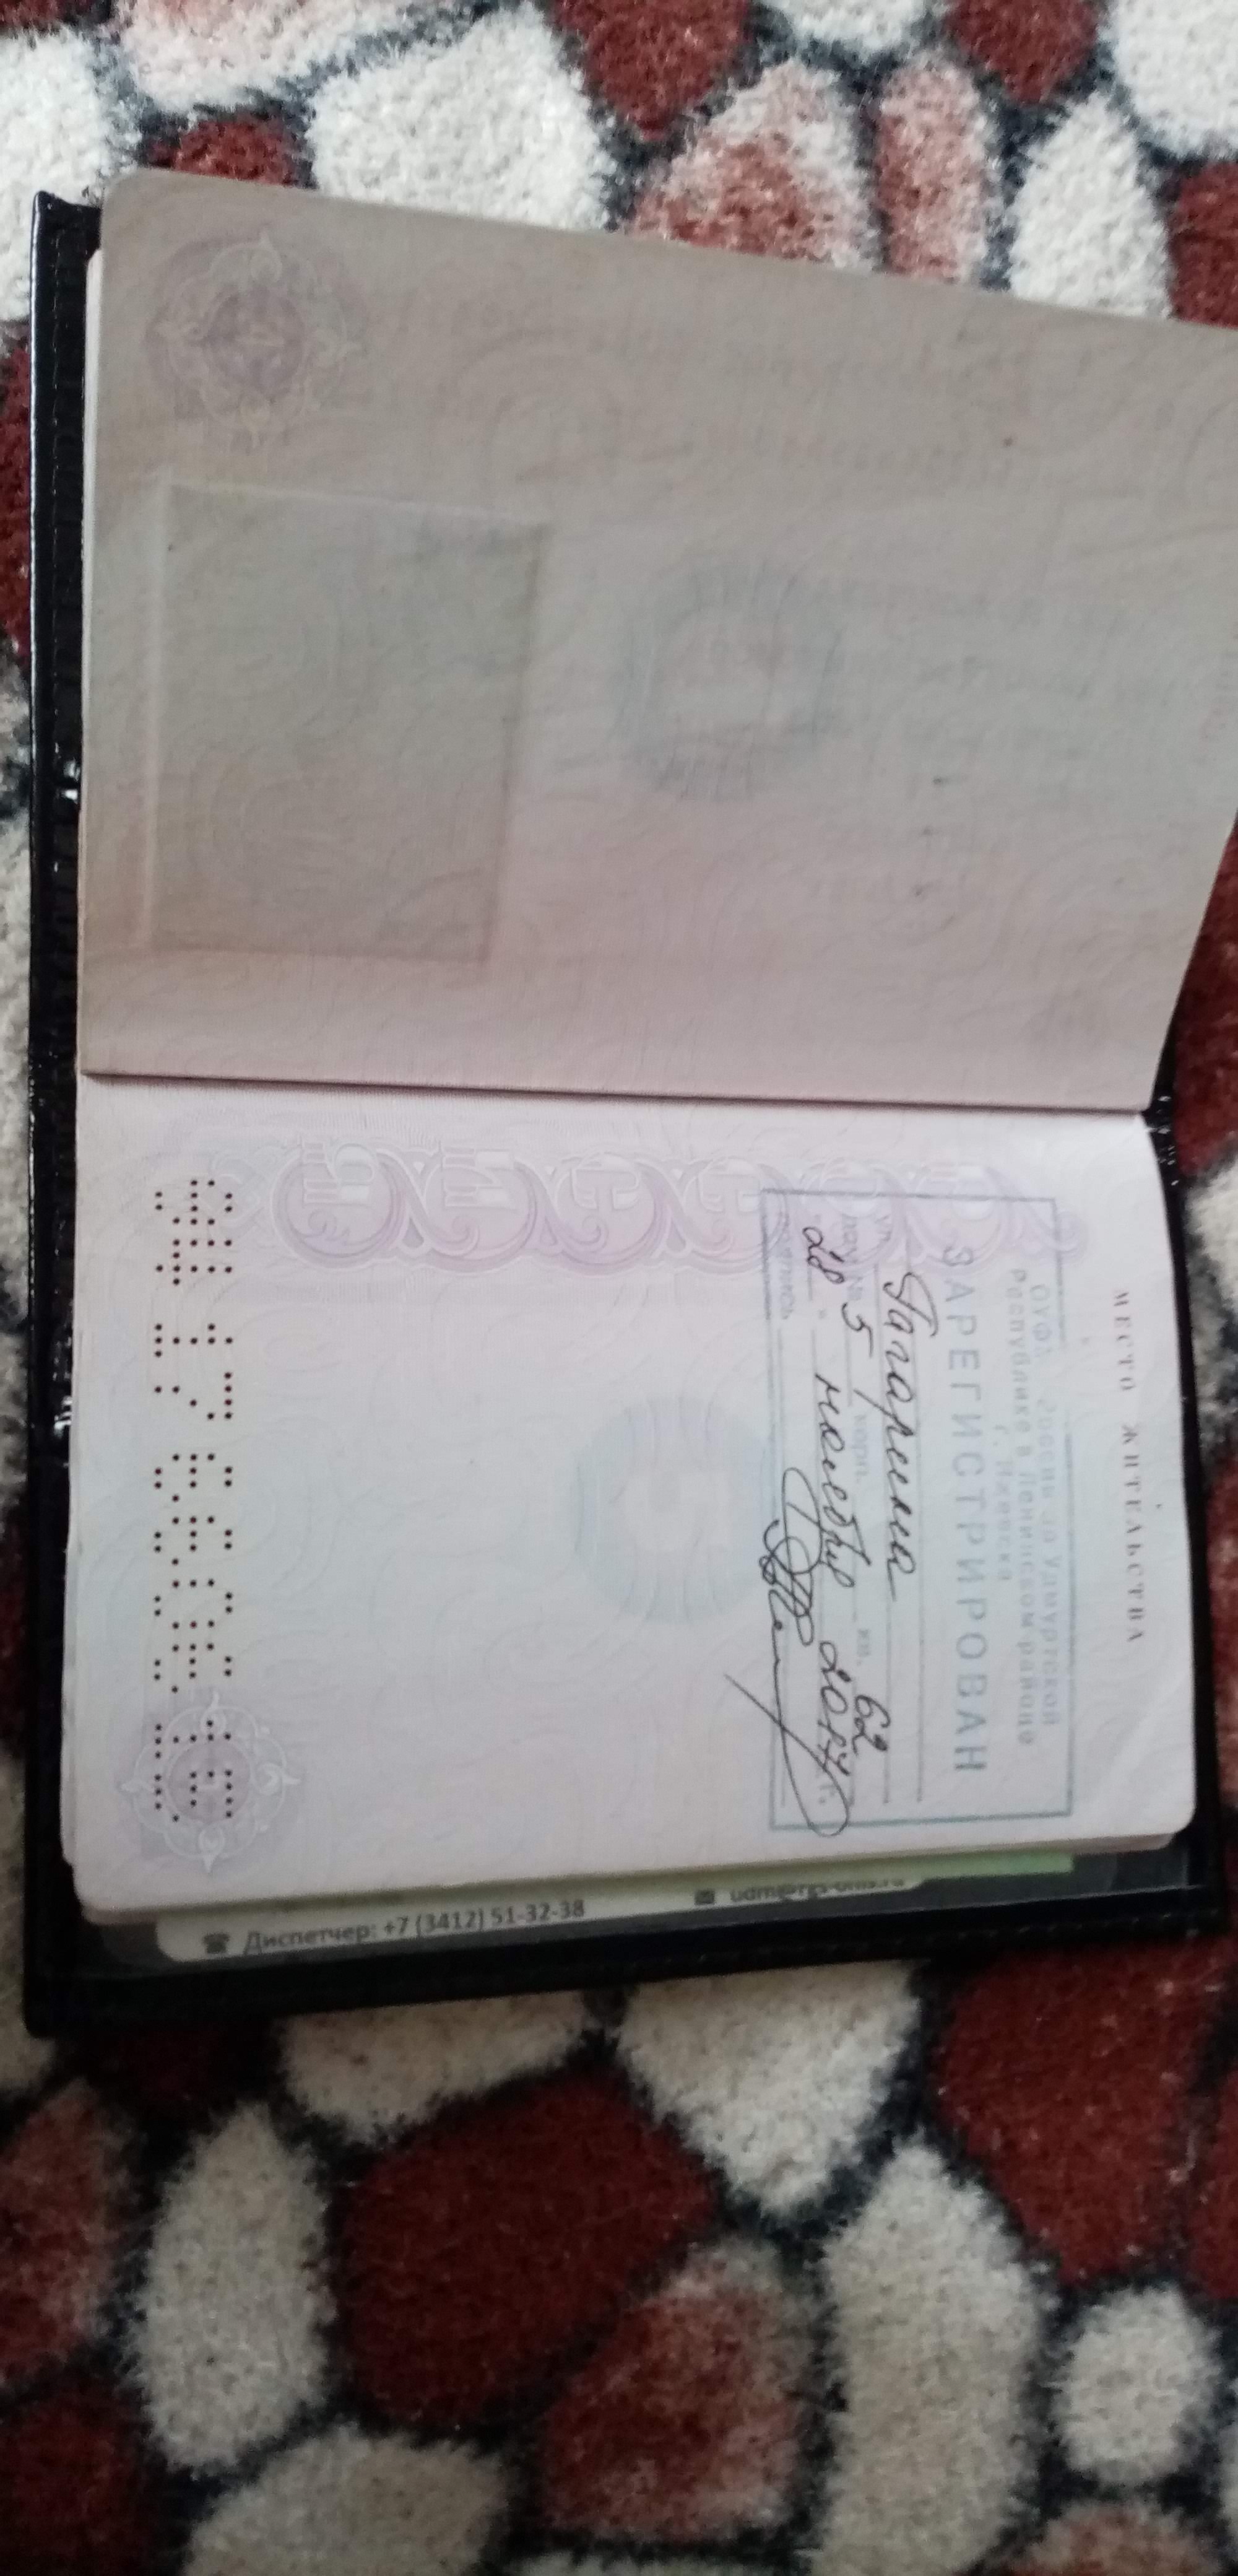 МЕСТО ЖИТЕЛЬСТВА
России по Удмуртской
Республике в Ленинском районе
г. Ижевска
ЗАРЕГИСТРИРОВАН
ул. Гагарина
дом № 5 корп. кв. 62
28 " ноября 2017 г.
подпись
Диспетчер: +7 (3412) 51-32-38